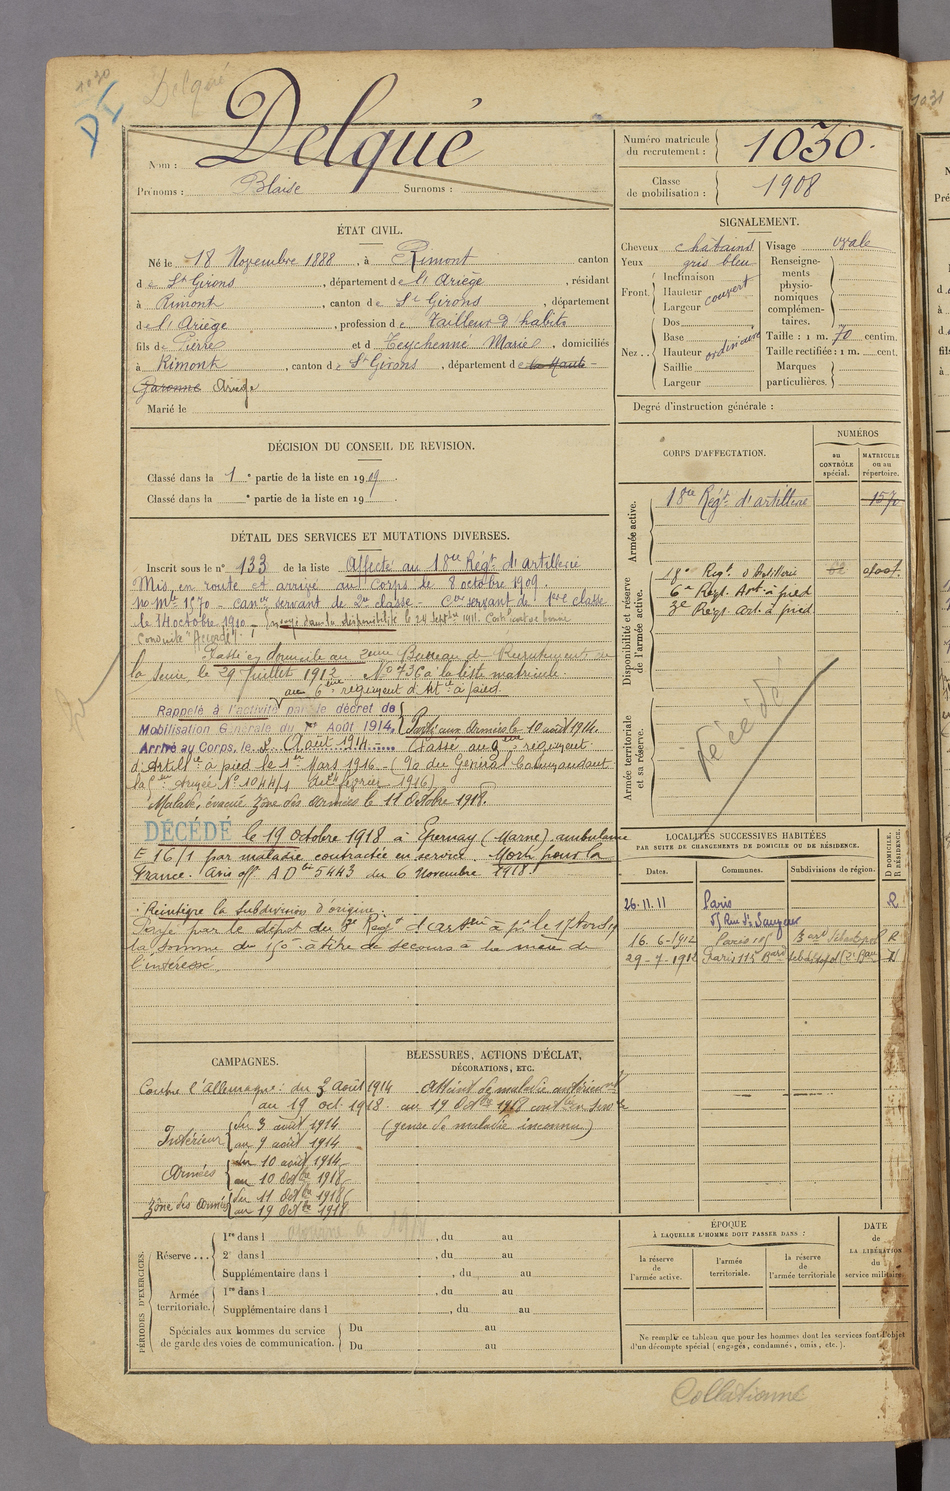 1030
Delqué
DI
Nom : Delqué
Prénoms : Blaise Surnoms :
Numéro matricule du recrutement : 1030.
Classe de mobilisation : 1908
ÉTAT CIVIL.
Né le 18 Novembre 1888, à Rimont canton
de St Girons, département de l'Ariège, résidant
à Rimont, canton de St Girons, département
de l'Ariège, profession de Tailleur d'habits
fils de Pierre et de Teychenné Marie, domiciliés
à Rimont, canton de St Girons, département de la Haute-
Garonne Ariège
Marié le
SIGNALEMENT.
Cheveux châtains
Yeux gris bleu
Front. Inclinaison
Hauteur couvert
Largeur
Nez .. Dos
Base
Hauteur ordinaire
Saillie
Largeur
Visage ovale
Renseignements physionomiques complémentaires.
Taille : 1 m. 70 centim.
Taille rectifiée : 1 m. cent.
Marques particulières.
Degré d'instruction générale :
DÉCISION DU CONSEIL DE REVISION.
Classé dans la 1e partie de la liste en 1909.
Classé dans la e partie de la liste en 19 .
CORPS D'AFFECTATION.
NUMÉROS
au CONTRÔLE spécial.
MATRICULE ou au répertoire.
Armée active.
18me Régt d'artillerie 1570
Disponibilité et réserve de l'armée active.
18e Regt. d'Artillerie
6e Régt. Art. à pied
3e Régt. Art. à pied
Armée territoriale et sa réserve.
décédé
DÉTAIL DES SERVICES ET MUTATIONS DIVERSES.
Inscrit sous le n° 133 de la liste Affecté au 18me Régt d'Artillerie
Mis en route et arrivé au Corps le 8 octobre 1909.
no Mle 1570 - canier servant de 2me classe - Cer servant de 1ère classe
le 14 octobre 1910 - envoyé dans la disponibilité le 24 Septbre 1911. Certificat de bonne
conduite "Accordé".
Passé en domicile au 2eme Bureau de Recrutement de
la Seine le 29 Juillet 1912 N° 736 à la liste matricule.
au 6eme régiment d'Artie à pied
Rappelé à l'activité par le décret de
Mobilisation Générale du 1er Août 1914. Parti aux armées le 10 août 1914.
Arrivé au Corps, le 3 Août 1914 Passé au 3eme régiment
d'Artillie à pied le 1er Mars 1916 - (No du Général Commandant
la Armée N° 1044/1 du Février 1916)
Malade, évacué Zône des Armées le 11 Octobre 1918.
DÉCÉDÉ le 19 octobre 1918 à Epernay (Marne) ambulance
E 16/1 par maladie contractée en service. Mort pour la
France. Avis off. AD 5443 du 6 Novembre 1918.
Réintègre la Subdivision d'origine.
Payé par le dépôt du 3e Régt d'arterie à p. le 17
la somme de 150 à titre de secours à la mère de
l'intéressé.
LOCALITÉS SUCCESSIVES HABITÉES
PAR SUITE DE CHANGEMENTS DE DOMICILE OU DE RÉSIDENCE.
Dates. Communes. Subdivisions de région. D DOMICILE. R RÉSIDENCE.
26.11.11 Paris R
16.6-1912 Paris 115 Bard Sébastopol R
29-7-1912 Paris 115 Bard Sébastopol (2e Bau D
CAMPAGNES.
Contre l'Allemagne : du 3 août 1914
au 19 oct 1918.
Intérieur du 3 août 1914
au 9 août 1914
Armées du 10 août 1914
au 10 Octbre 1918
Zône des Armées du 11 Octbre 1918
au 19 Octbre 1918
BLESSURES, ACTIONS D'ÉCLAT,
DÉCORATIONS, ETC.
Atteint de maladie antérieurt
au 19 Octbre 1918
(genre de maladie inconnu)
PÉRIODES D'EXERCICES.
Réserve ... 1re dans l , du au
2e dans l , du au
Supplémentaire dans l , du au
Armée territoriale. 1re dans l , du au
Supplémentaire dans l , du au
Spéciales aux hommes du service de garde des voies de communication. Du au
Du au
ÉPOQUE
À LAQUELLE L'HOMME DOIT PASSER DANS :
la réserve de l'armée active.
l'armée territoriale.
la réserve de l'armée territoriale
DATE de LA LIBÉRATION du service militaire.
Ne remplir ce tableau que pour les hommes dont les services font l'objet
d'un décompte spécial (engagés, condamnés, omis, etc.).
Collationné